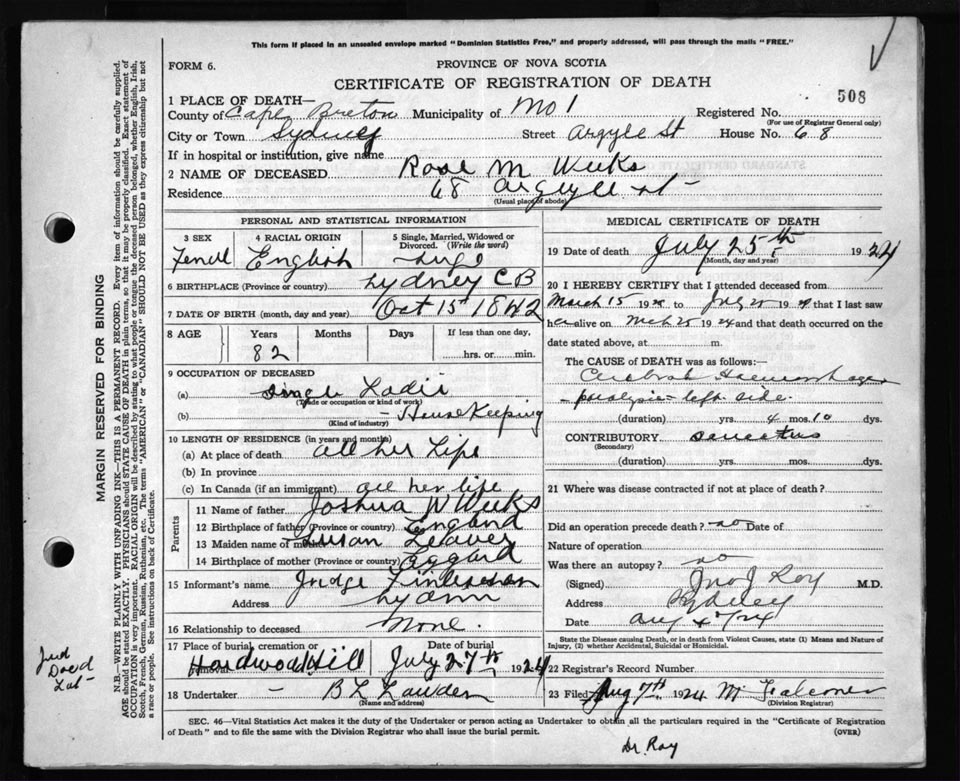 This form if placed in an unsealed envelope marked "Dominion Statistics Free," and properly addressed, will pass through the mails "FREE."
FORM 6.
PROVINCE OF NOVA SCOTIA
CERTIFICATE OF REGISTRATION OF DEATH
508
1 PLACE OF DEATH—
County of Cape Breton Municipality of No 1 Registered No.
(For use of Registrar General only)
City or Town Sydney Street Argyle St House No. 68
If in hospital or institution, give name
2 NAME OF DECEASED Rose M Weeks
Residence 68 Argyle st -
(Usual place of abode)
PERSONAL AND STATISTICAL INFORMATION
3 SEX 4 RACIAL ORIGIN 5 Single, Married, Widowed or Divorced. (Write the word)
English
6 BIRTHPLACE (Province or country) Sydney C B
7 DATE OF BIRTH (month, day and year) Oct 15th 1842
8 AGE Years Months Days If less than one day,
82 hrs. or min.
9 OCCUPATION OF DECEASED
(a) Single
(Trade or occupation or kind of work)
(b) - House Keeping
(Kind of industry)
10 LENGTH OF RESIDENCE (in years and months)
(a) At place of death all her Life
(b) In province
(c) In Canada (if an immigrant) all her life
Parents
11 Name of father Joshua W Weeks
12 Birthplace of father (Province or country) England
13 Maiden name of mother Susan
14 Birthplace of mother (Province or country)
15 Informant's name Judge
Address
16 Relationship to deceased None.
17 Place of burial, cremation or removal Date of burial
Hardwood Hill July 27th 1924
18 Undertaker - B L
(Name and address)
MEDICAL CERTIFICATE OF DEATH
19 Date of death July 25th 1924
(Month, day and year)
20 I HEREBY CERTIFY that I attended deceased from
March 15 1924 to July 25 1924 that I last saw
her alive on 25 1924 and that death occurred on the
date stated above, at m.
The CAUSE of DEATH was as follows:—
Cerebral Haemorrhage
- paralysis left side.
(duration) yrs. 4 mos. 10 dys.
CONTRIBUTORY
(Secondary)
(duration) yrs. mos. dys.
21 Where was disease contracted if not at place of death?
Did an operation precede death? no Date of
Nature of operation
Was there an autopsy? no
(Signed) Jno J Roy M.D.
Address Sydney
Date Aug 4th/24
State the Disease causing Death, or in death from Violent Causes, state (1) Means and Nature of Injury, (2) whether Accidental, Suicidal or Homicidal.
22 Registrar's Record Number
23 Filed Aug 7th 1924 M Falconer
(Division Registrar)
SEC. 46—Vital Statistics Act makes it the duty of the Undertaker or person acting as Undertaker to obtain all the particulars required in the "Certificate of Registration
of Death" and to file the same with the Division Registrar who shall issue the burial permit. (OVER)
Dr. Roy
MARGIN RESERVED FOR BINDING
N.B.—WRITE PLAINLY WITH UNFADING INK—THIS IS A PERMANENT RECORD. Every item of information should be carefully supplied.
AGE should be stated EXACTLY. PHYSICIANS should STATE CAUSE OF DEATH in plain terms, so that it may be properly classified. Exact statement of
OCCUPATION is very important. RACIAL ORIGIN will be described by stating to what people or tongue the deceased person belonged, whether English, Irish,
Scotch, French, German, Russian, Ruthenian, etc. The terms "AMERICAN" or "CANADIAN" SHOULD NOT BE USED as they express citizenship but not
a race or people. See instructions on back of Certificate.